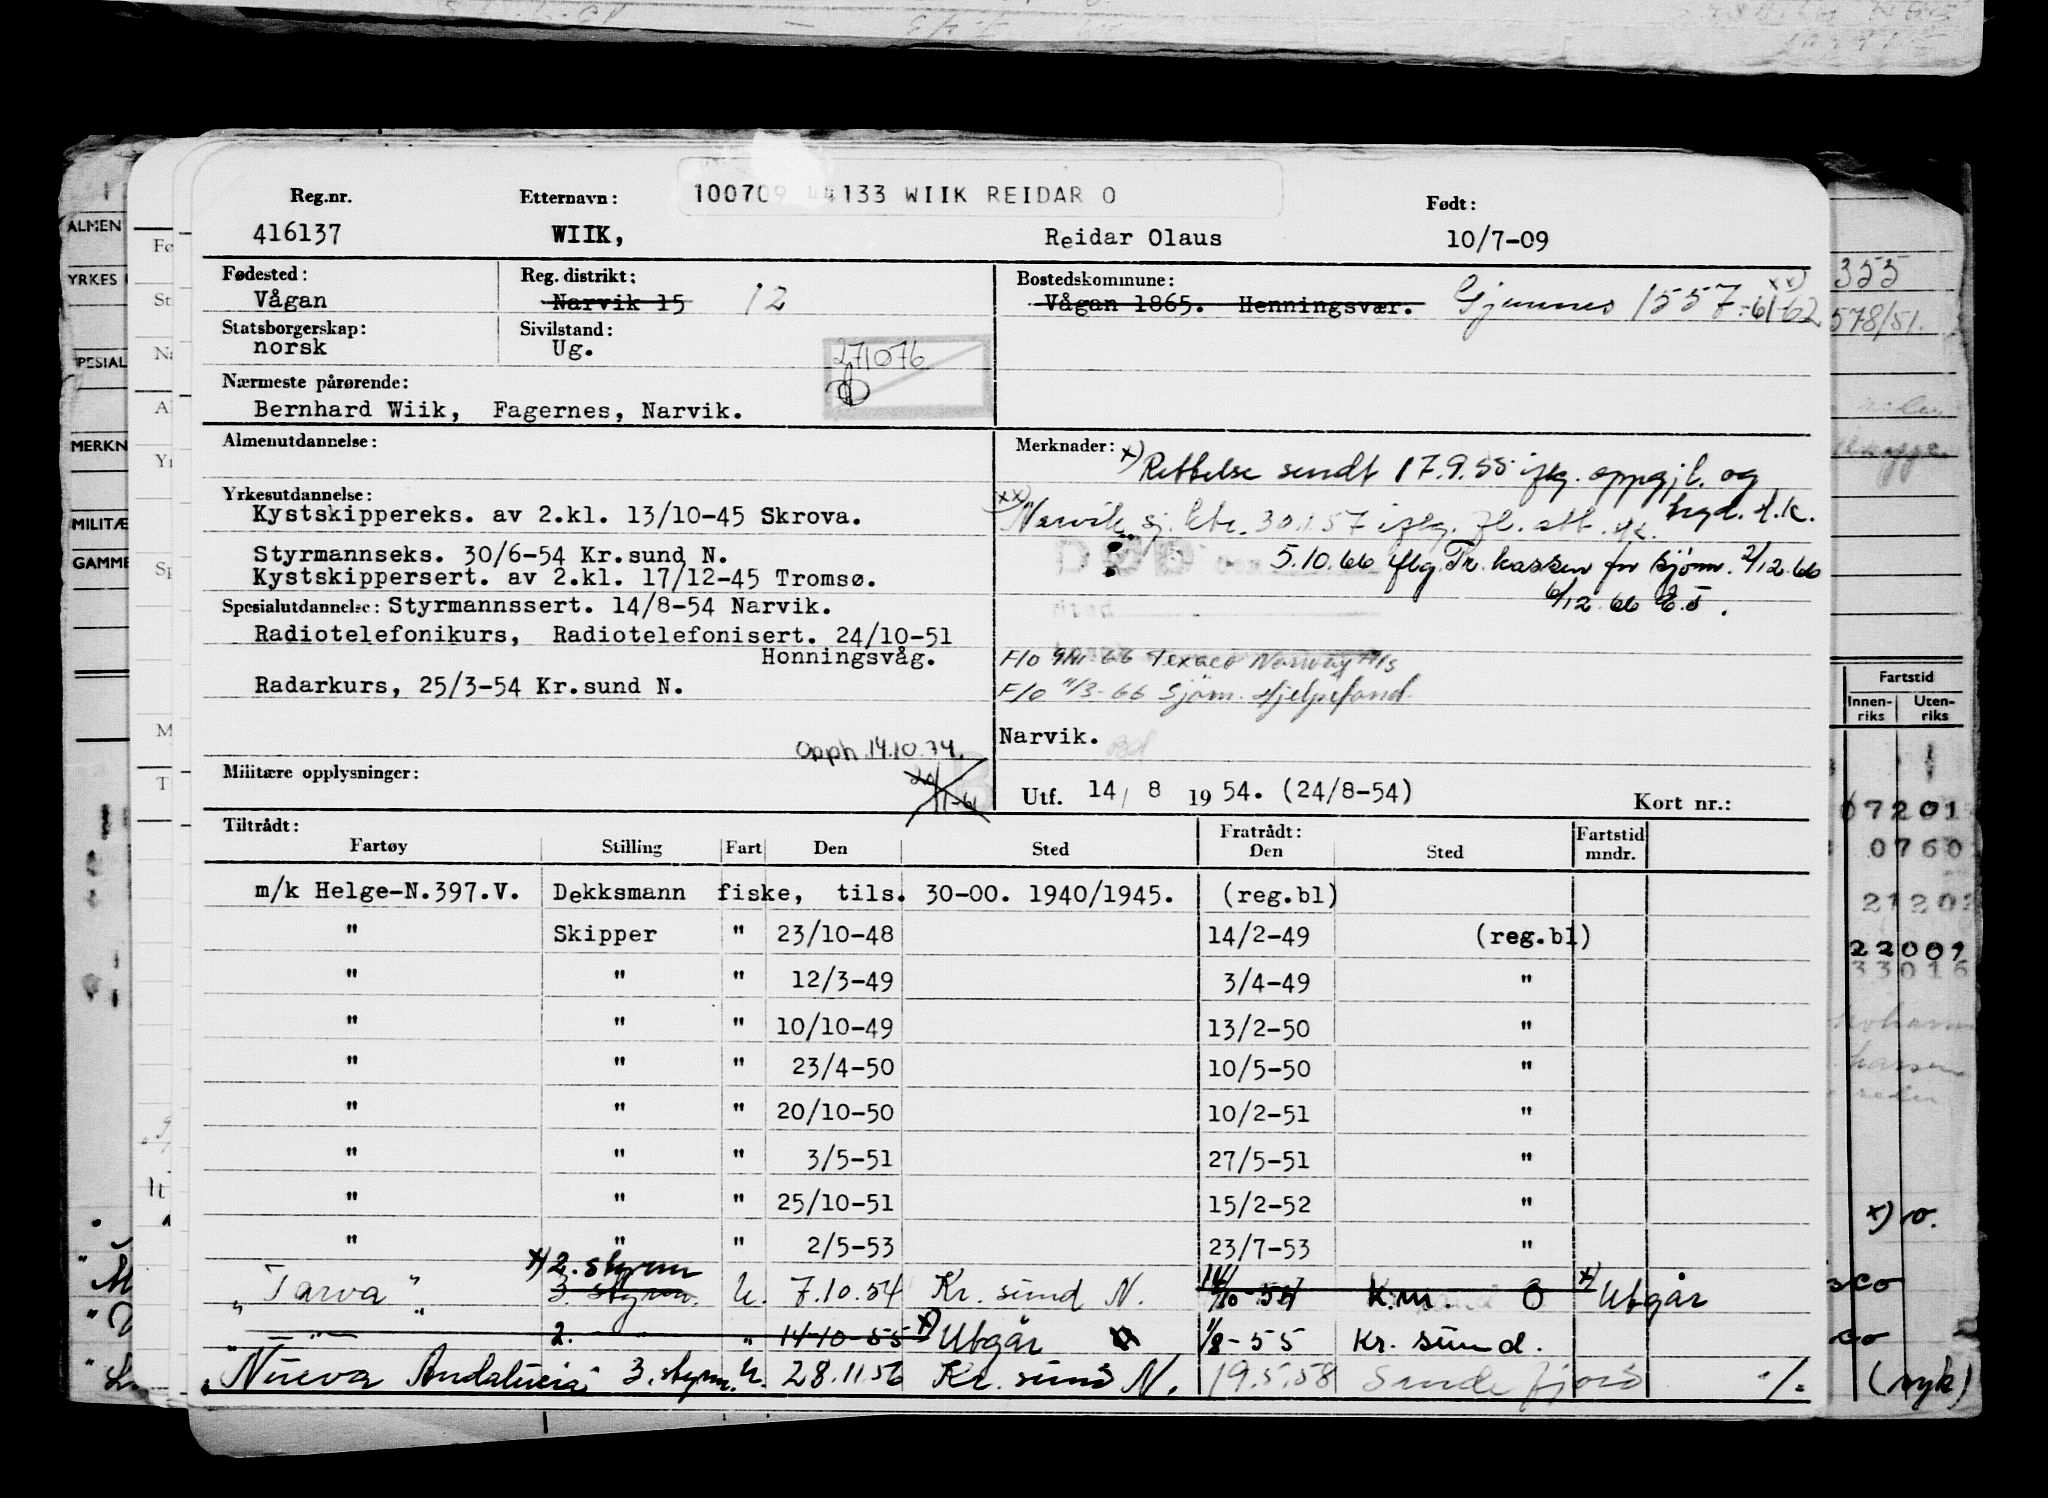 Reg.nr. Etternavn: 100709 44133 WIIK REIDAR O Født:
416137 WIIK, Reidar Olaus 10/7-09
Fødested: Reg. distrikt: Bostedskommune:
Vågan Narvik 15 12 Vågan 1865. Henningsvær. Gjemnes 1557-61-62 xx)
Statsborgerskap: Sivilstand:
norsk Ug.
271076
Nærmeste pårørende:
Bernhard Wiik, Fagernes, Narvik.
Almenutdannelse: Merknader:
x) Rettelse sendt 17.9.55 iflg. oppgjl. og
Yrkesutdannelse:
Kystskippereks. av 2.kl. 13/10-45 Skrova.
xx) Narvik sj.ktr. 30.1.57 iflg.
Styrmannseks. 30/6-54 Kr.sund N.
5.10.66 iflg Tr.kassen for sjøm. 2/12.66
Kystskippersert. av 2.kl. 17/12-45 Tromsø.
6/12.66 E.S.
Spesialutdannelse: Styrmannssert. 14/8-54 Narvik.
Radiotelefonikurs, Radiotelefonisert. 24/10-51
Honningsvåg.
F/o Texaco Norway A/s
Radarkurs, 25/3-54 Kr.sund N.
F/o 11/3-66 Sjøm. Hjelpefond
Narvik.
Opph. 14.10.74.
Militære opplysninger:
Utf. 14/ 8 19 54. (24/8-54) Kort nr.:
Tiltrådt: Fratrådt: Fartstid
Fartøy Stilling Fart Den Sted Den Sted mndr.
m/k Helge-N.397.V. Dekksmann fiske, tils. 30-00. 1940/1945. (reg.bl)
" Skipper " 23/10-48 14/2-49 (reg.bl)
" " " 12/3-49 3/4-49 "
" " " 10/10-49 13/2-50 "
" " " 23/4-50 10/5-50 "
" " " 20/10-50 10/2-51 "
" " " 3/5-51 27/5-51 "
" " " 25/10-51 15/2-52 "
" " " 2/5-53 23/7-53 "
x) 2. styrm
"Tarva" 3. styrm. U. 7.10.54 Kr. sund N. K.m. 8 x) Utgår
" 2. " " 14-10-55 x) Utgår 1/8-55 Kr. sund.
"Nueva Andalucia" 3. styrm. U. 28.11.56 Kr. sund N. 19.5.58 Sandefjord ./.
ALMEN
YRKES
SPESIAL
MERKN
MILITÆ
GAMME
355
578/51.
Fartstid
Innen-riks Uten-riks
07201
0760
22009
33016
x) o.
(ryk)